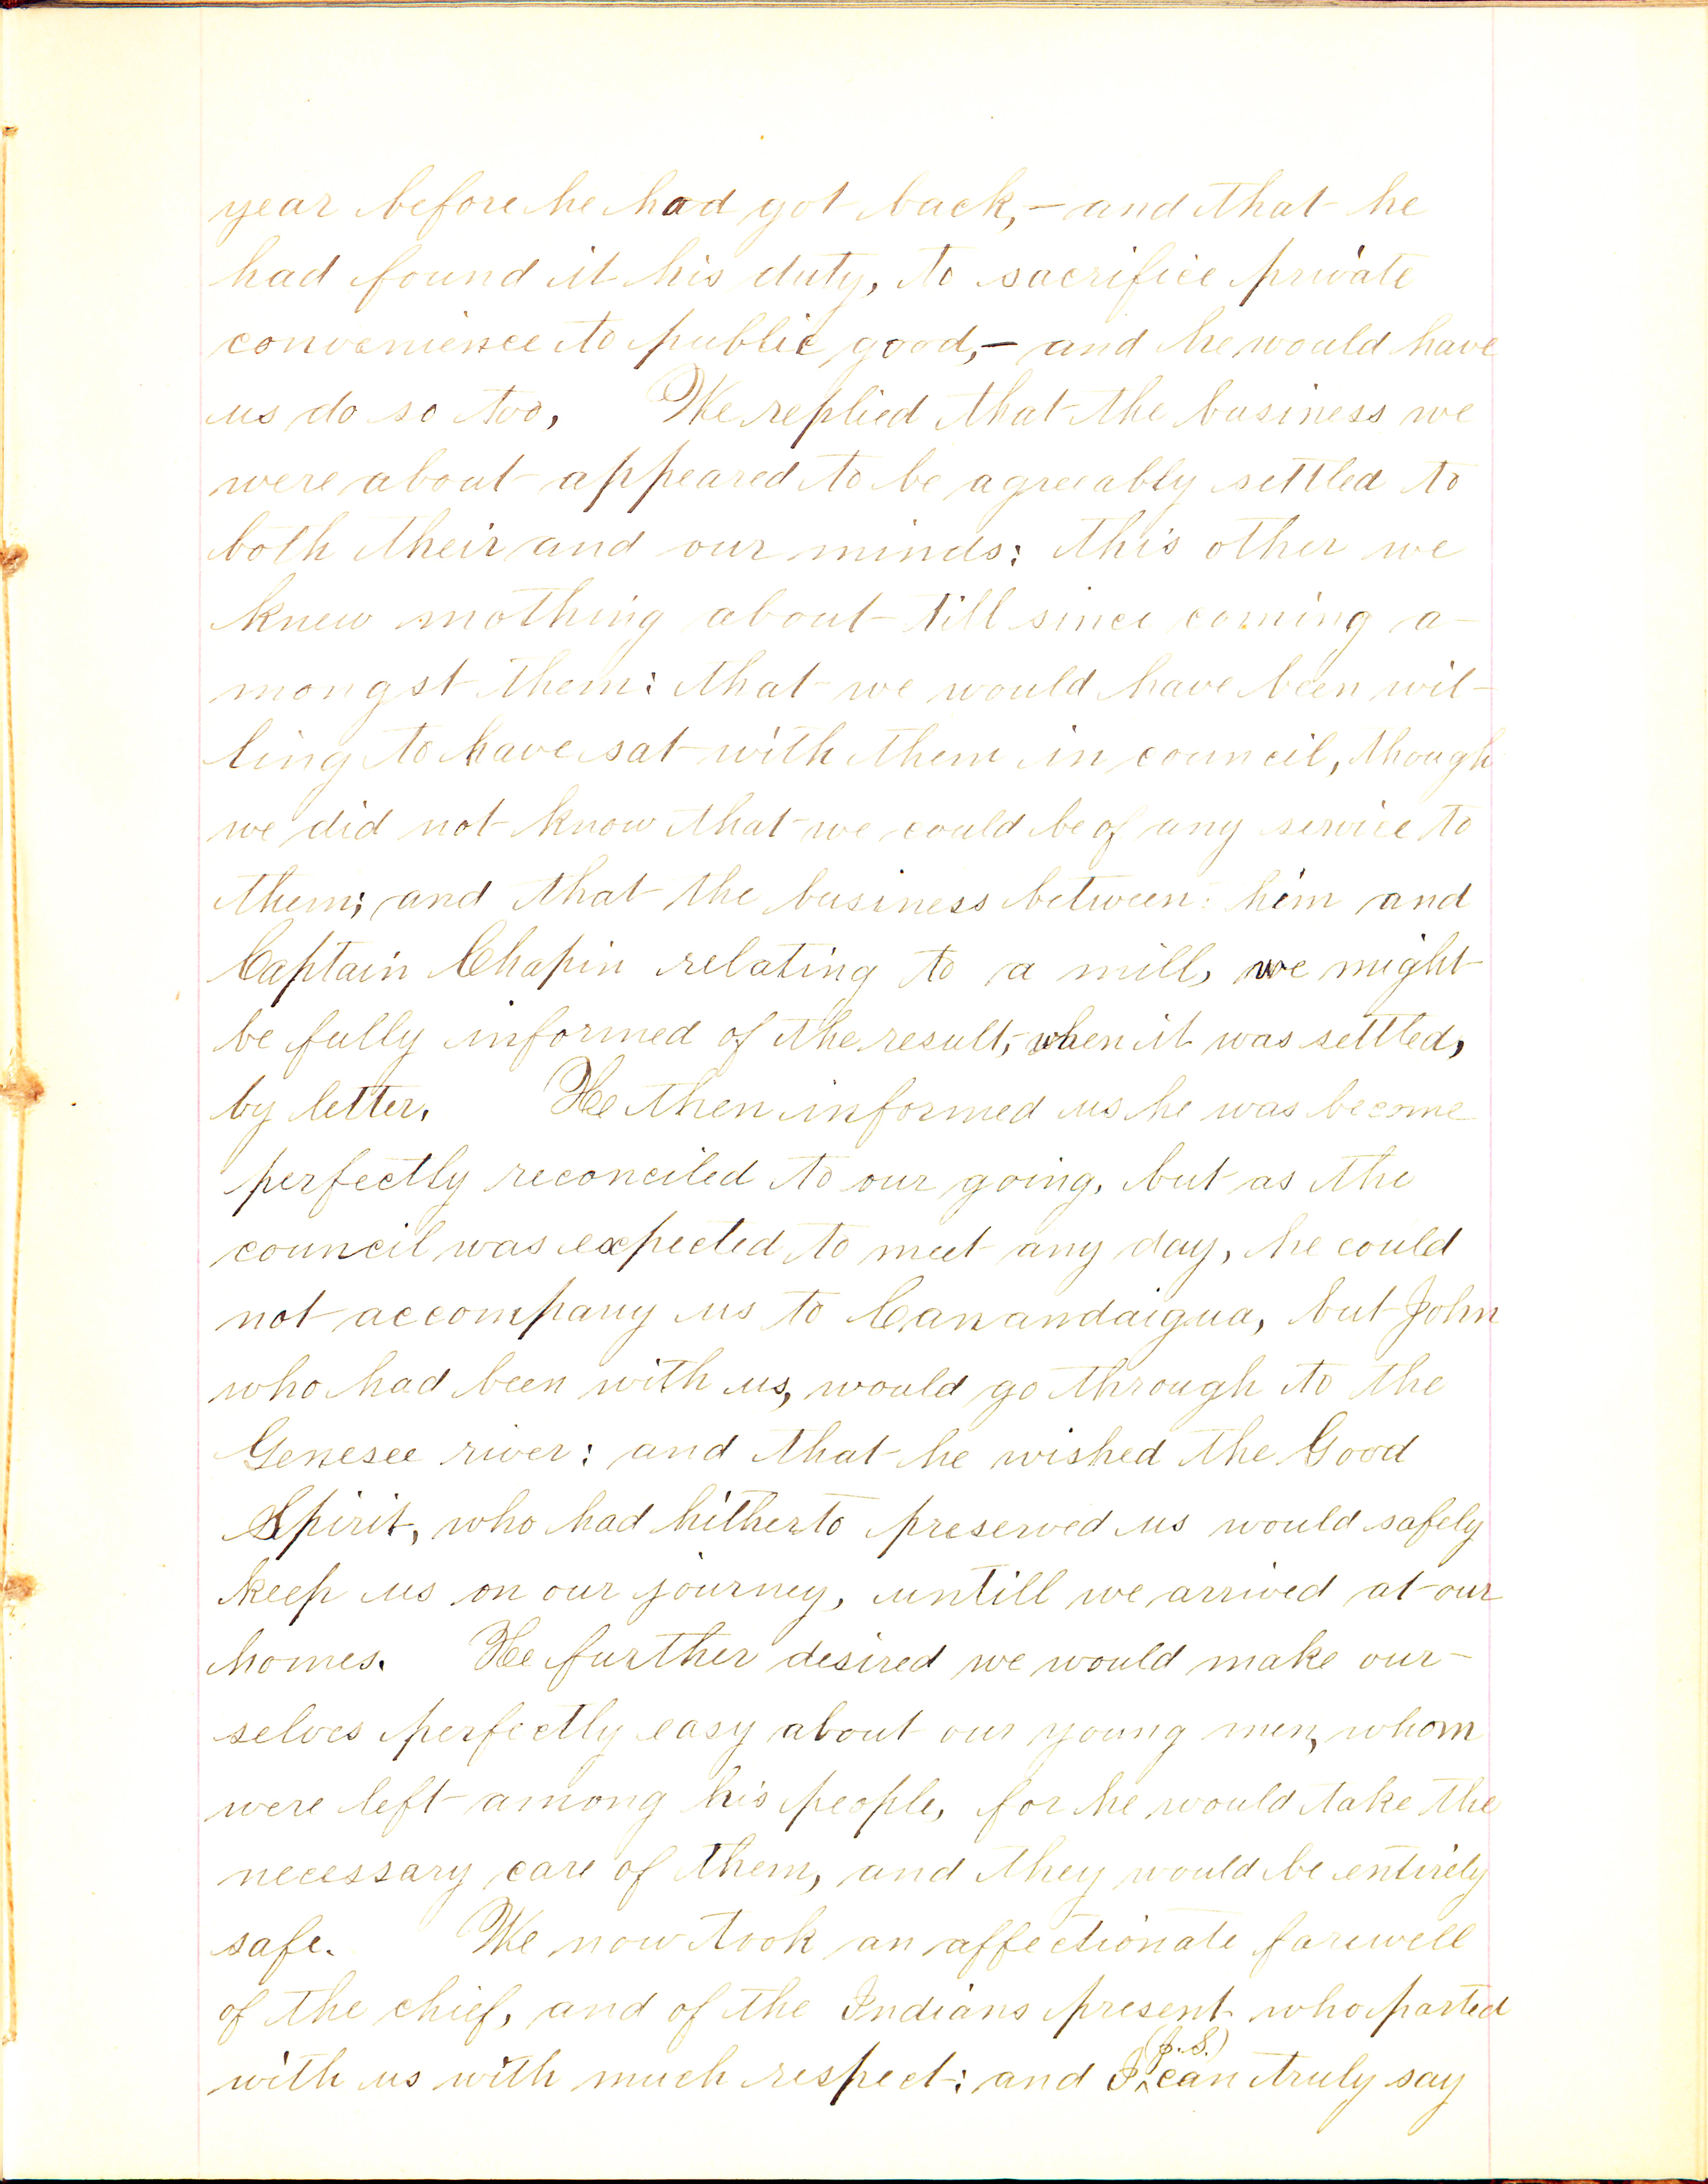 year before he had got back,- and that he
had found it his duty, to sacrifice private
convenience to public good,- and he would have
us do so too, We replied that the business we
were about appeared to be agreeably settled to
both their and our minds: this other we
knew nothing about till since coming a-
mongst them: that we would have been wil-
ling to have sat with them in council, though
we did not know that we could be of any service to
them; and that the business between him and
Captain Chapin relating to a mill, we might
be fully informed of the result, when it was settled,
by letter. He then informed us he was become
perfectly reconciled to our going, but as the
council was expected to meet any day, he could
not accompany us to Canandaigua, but John
who had been with us, would go through to the
Genesee river: and that he wished the Good
Spirit, who had hitherto preserved us would safely
keep us on our journey, untill we arrived at our
homes. He further desired we would make our-
selves perfectly easy about our young men, whom
were left among his people, for he would take the
necessary care of them, and they would be entirely
safe. We now took an affectionate farewell
of the chief, and of the Indians present who parted
with us with much respect: and I (J.S.) can truly say